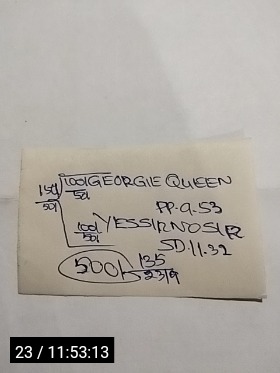 150/ 100/ GEORGIE QUEEN
50/ 50/
PP.9.53
100/ YESSIRNOSIR
50/
SD.11.32
500/ 135
2319
23 / 11:53:13